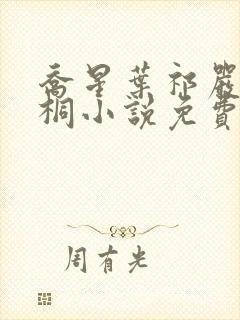 喬星葉祁嚴
桐小說免費
周有光